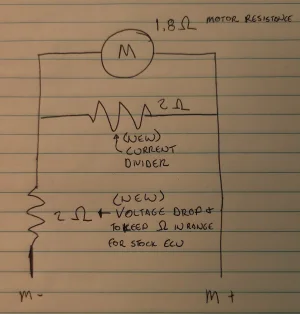 1.8Ω MOTOR RESISTANCE
M
2Ω
(NEW)
CURRENT
DIVIDER
(NEW)
2Ω ← VOLTAGE DROP &
TO KEEP Ω IN RANGE
FOR STOCK ECU
M-
M+